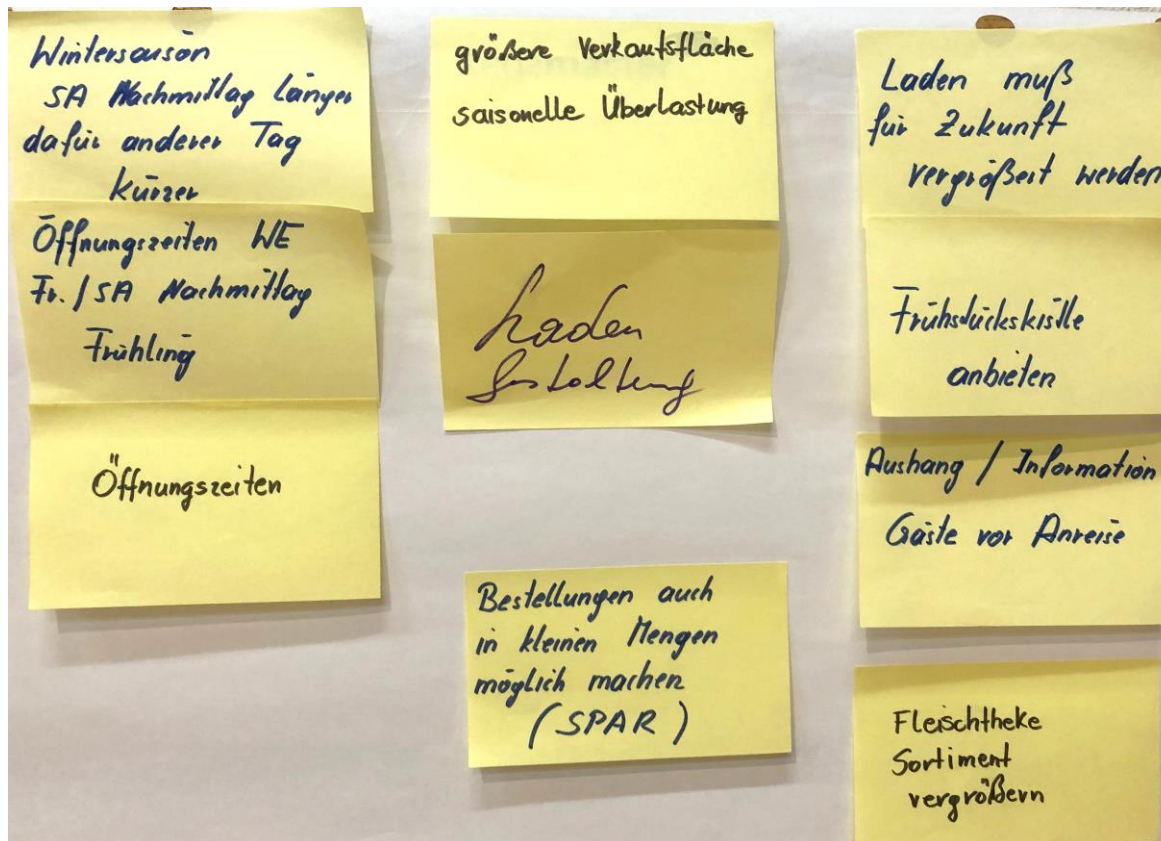 Wintersaison
SA Nachmittag länger
dafür anderer Tag
kürzer
Öffnungszeiten WE
Fr. / SA Nachmittag
Frühling
Öffnungszeiten
größere Verkaufsfläche
saisonelle Überlastung
Laden
Gestaltung
Bestellungen auch
in kleinen Mengen
möglich machen
(SPAR)
Laden muß
für Zukunft
vergrößert werden
Frühstückskistle
anbieten
Aushang / Information
Gäste vor Anreise
Fleischtheke
Sortiment
vergrößern